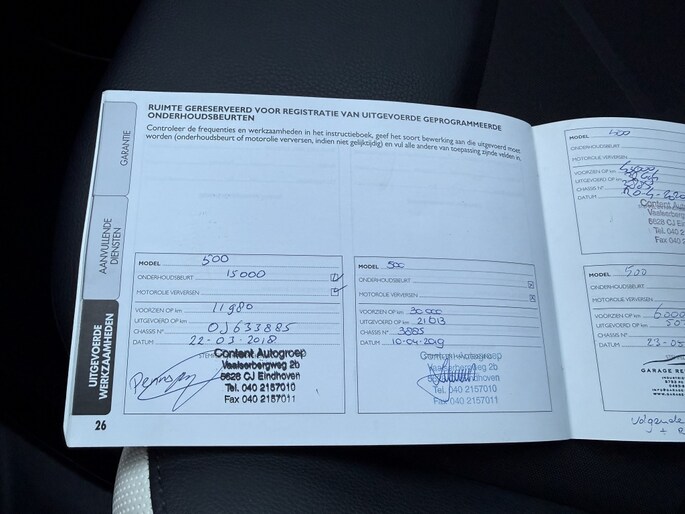 RUIMTE GERESERVEERD VOOR REGISTRATIE VAN UITGEVOERDE GEPROGRAMMEERDE
ONDERHOUDSBEURTEN
Controleer de frequenties en werkzaamheden in het instructieboek, geef het soort bewerking aan die uitgevoerd moet
worden (onderhoudsbeurt of motorolie verversen, indien niet gelijktijdig) en vul alle andere van toepassing zijnde velden in.
GARANTIE
AANVULLENDE
DIENSTEN
UITGEVOERDE
WERKZAAMHEDEN
26
MODEL 500
ONDERHOUDSBEURT 15000
MOTOROLIE VERVERSEN
VOORZIEN OP km 11980
UITGEVOERD OP km
CHASSIS N° 0J633885
DATUM 22-03-2018
Content Autogroep
Vaalserbergweg 2b
5628 CJ Eindhoven
Tel. 040 2157010
Fax 040 2157011
MODEL 500
ONDERHOUDSBEURT
MOTOROLIE VERVERSEN
VOORZIEN OP km 30.000
UITGEVOERD OP km 21013
CHASSIS N° 3885
DATUM 10-04-2019
Content Autogroep
Vaalserbergweg 2b
5628 CJ Eindhoven
Tel. 040 2157010
Fax 040 2157011
MODEL 500
ONDERHOUDSBEURT
MOTOROLIE VERVERSEN
VOORZIEN OP km
UITGEVOERD OP km
CHASSIS N°
DATUM
Content Autog
Vaalserbergweg
5628 CJ Eind
Tel. 040 21
Fax 040 2
MODEL 500
ONDERHOUDSBEURT
MOTOROLIE VERVERSEN
VOORZIEN OP km 6000
UITGEVOERD OP km
CHASSIS N°
DATUM 23-05
GARAGE RE
Volgende